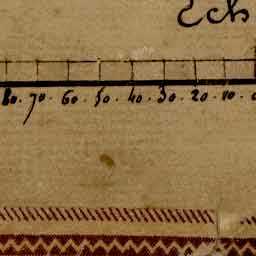 Ech
80. 70. 60. 50. 40. 30. 20. 10. 0